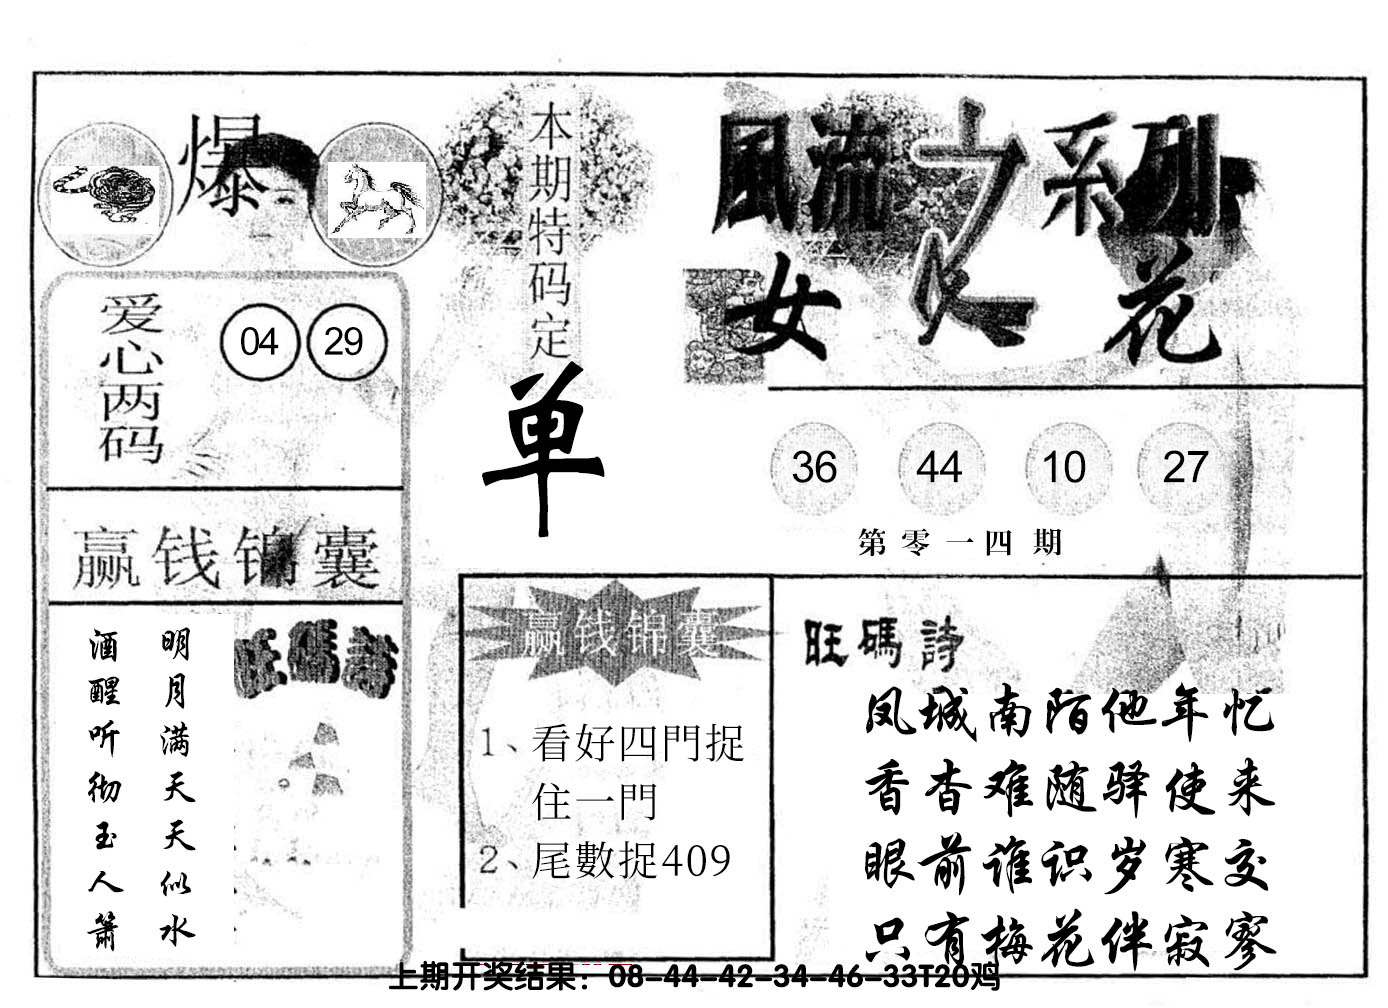 爆
本期特码定
单
風流之系列
女人花
爱心两码
04 29
36 44 10 27
第零一四期
赢钱锦囊
明月满天天似水
酒醒听彻玉人箫
旺碼詩
赢钱锦囊
1、看好四門捉
住一門
2、尾數捉409
旺碼詩
凤城南陌他年忆
香杳难随驿使来
眼前谁识岁寒交
只有梅花伴寂寥
上期开奖结果：08-44-42-34-46-33T20鸡